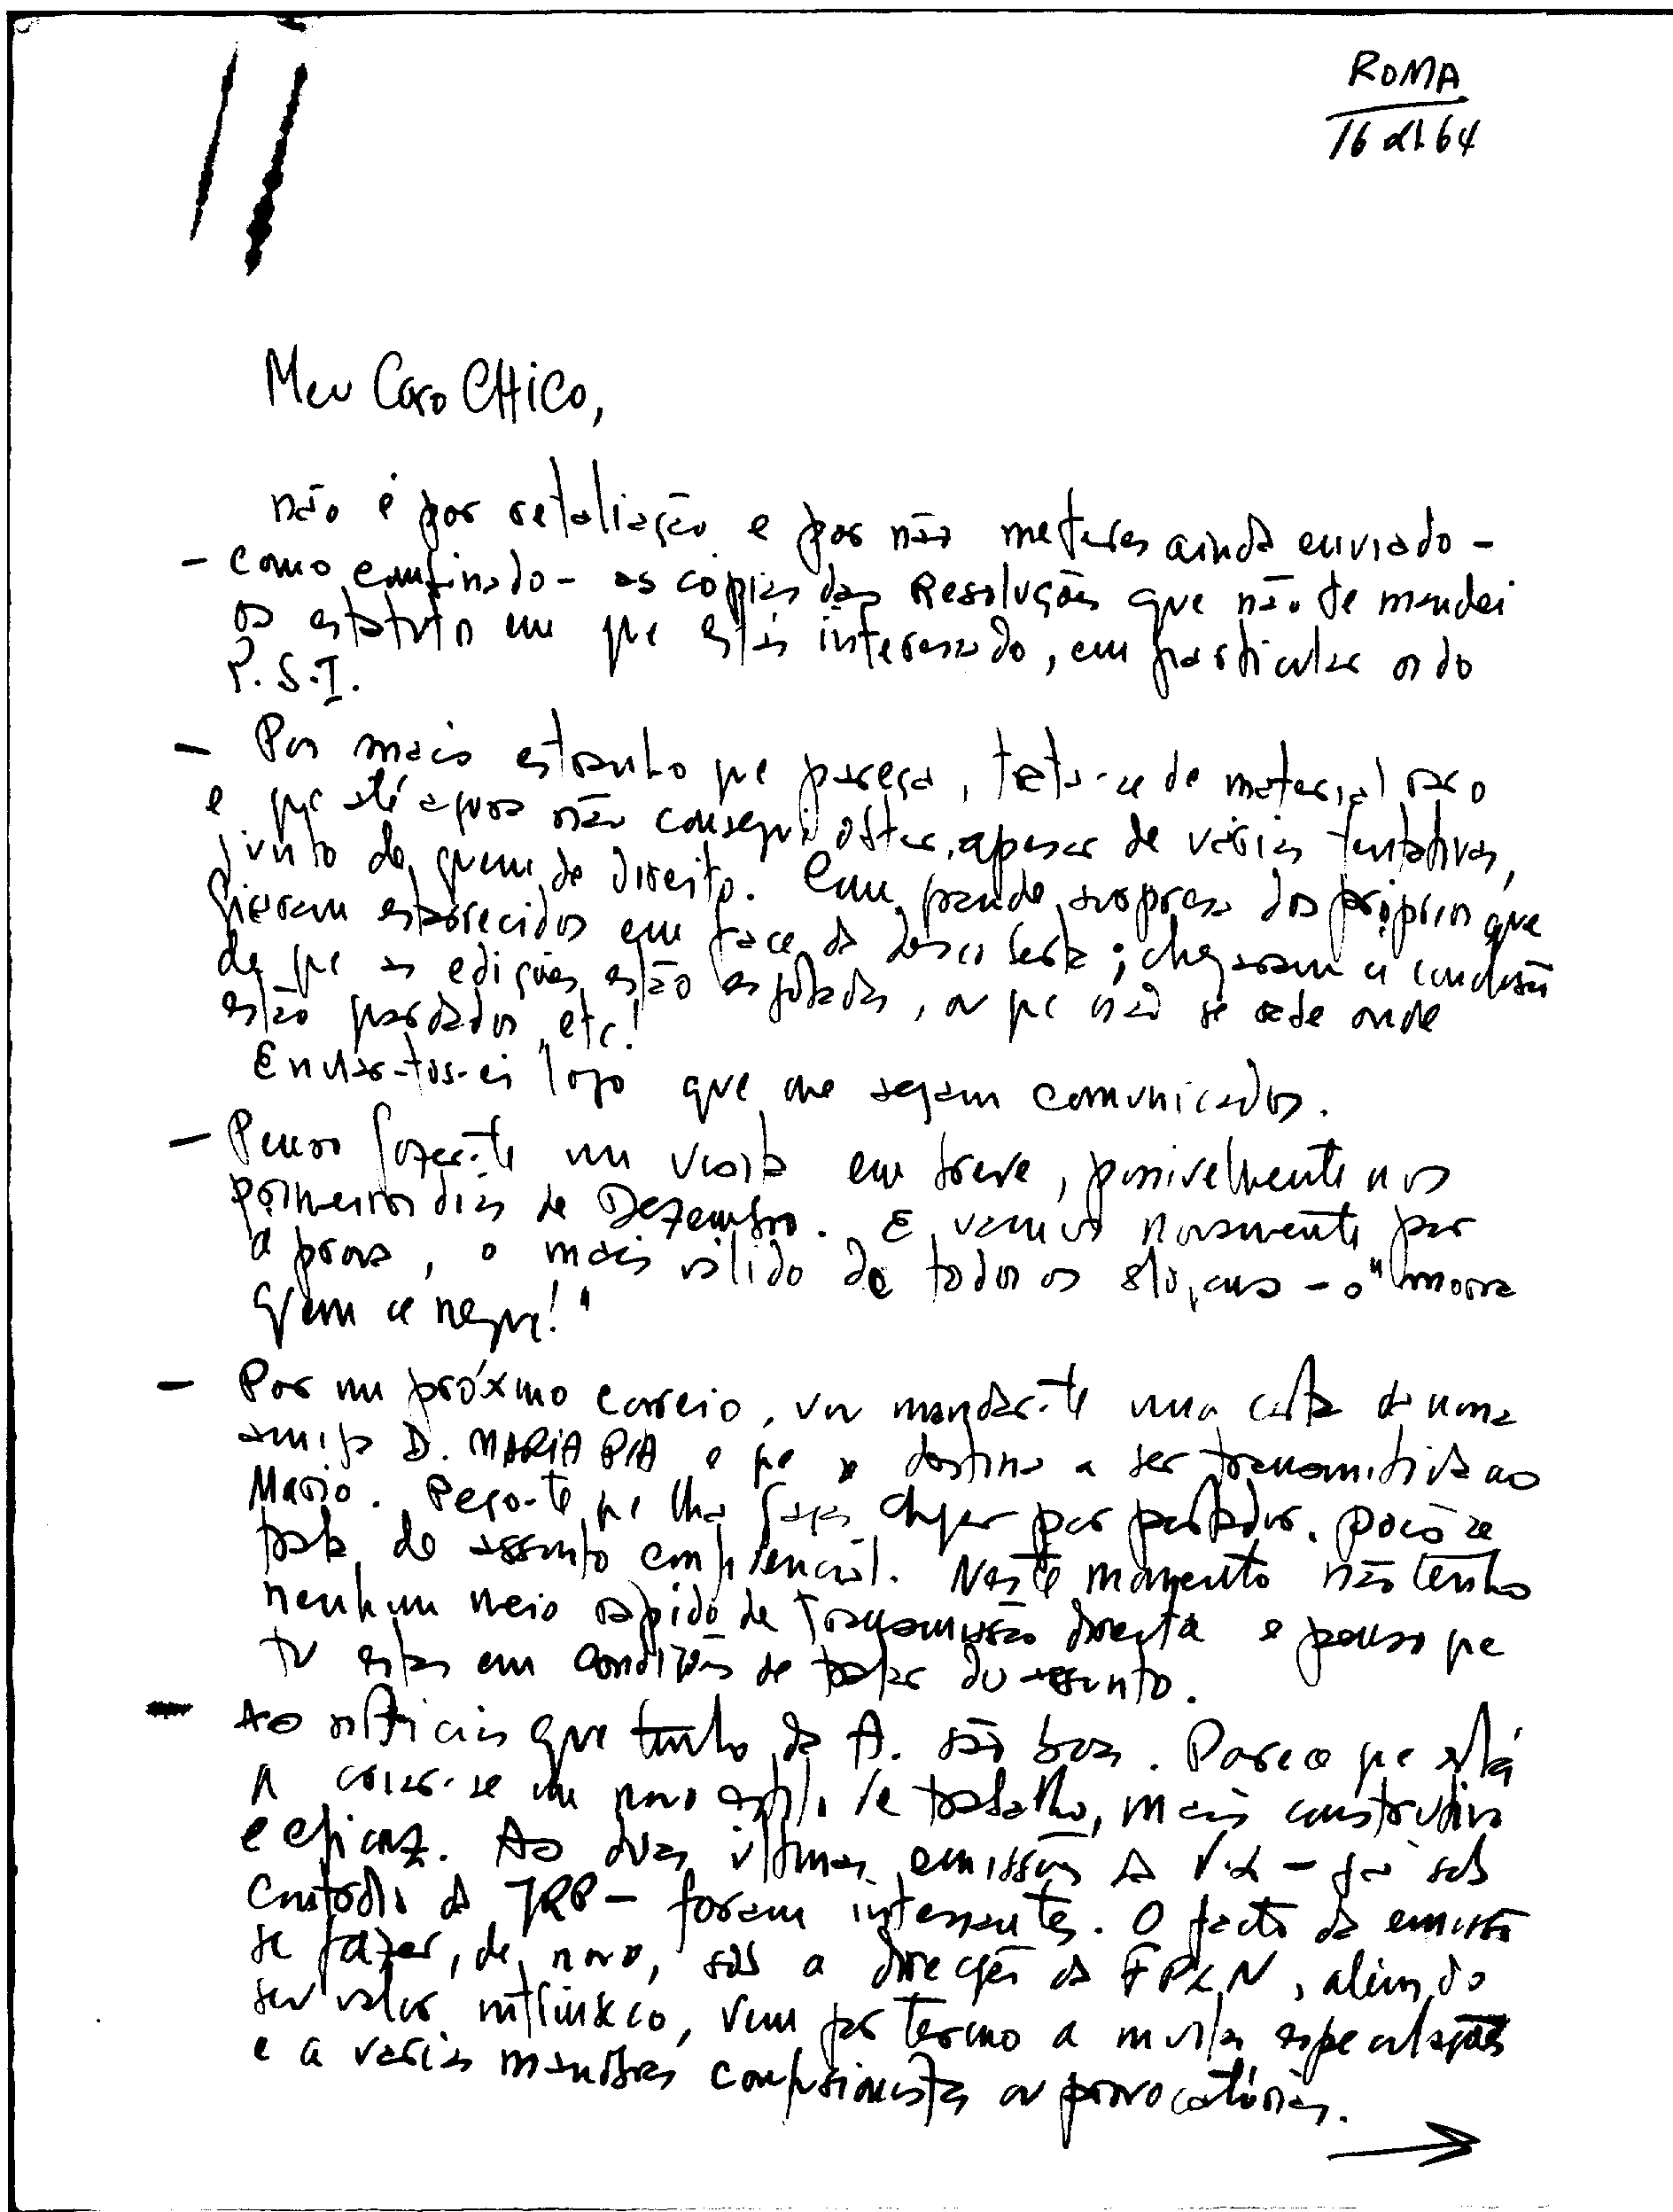 ROMA
16 64
Meu Caro CHICO,
não é por retaliação e por não me teres ainda enviado -
- como combinado - as cópias das Resoluções que não te mandei
os estatutos em que estás interessado, em particular os do
P.S.I.
- Por mais estranho que pareça, trata-se de material raro
e que até agora não consegui obter, apesar de várias tentativas,
junto de quem de direito. Com grande surpresa dos próprios que
ficaram estarrecidos em face da descoberta; chegaram à conclusão
de que as edições estão esgotadas, ou que não se sabe onde
estão guardados, etc!
Enviar-tos-ei logo que me sejam comunicados.
- Penso fazer-te uma visita em breve, possivelmente nos
primeiros dias de Dezembro. E vamos novamente pôr
à prova, o mais válido de todos os slogans - o "morra
quem se negue!"
- Por um próximo correio, vou mandar-te uma carta da nossa
amiga D. MARIA PIA e que se destina a ser transmitida ao
Mario. Peço-te que lha faças chegar por portador, pois se
trata de assunto confidencial. Neste momento não tenho
nenhum meio rápido de transmissão directa e penso que
tu estás em condições de tratar do assunto.
- As notícias que tenho da A. são boas. Parece que está
a criar-se um novo estilo de trabalho, mais construtivo
e eficaz. As duas últimas emissões da V.L - já sob
custódia da JRP - foram interessantes. O facto da emissão
se fazer, de novo, sob a direcção da FPLN, além do
seu valor intrínseco, vem pôr termo a muitas especulações
e a várias manobras confusionistas ou provocatórias.